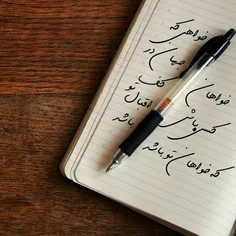 خواهی که
جهان در
کف اقبال تو
باشد
خواهان
کسی باش
که خواهان تو باشد